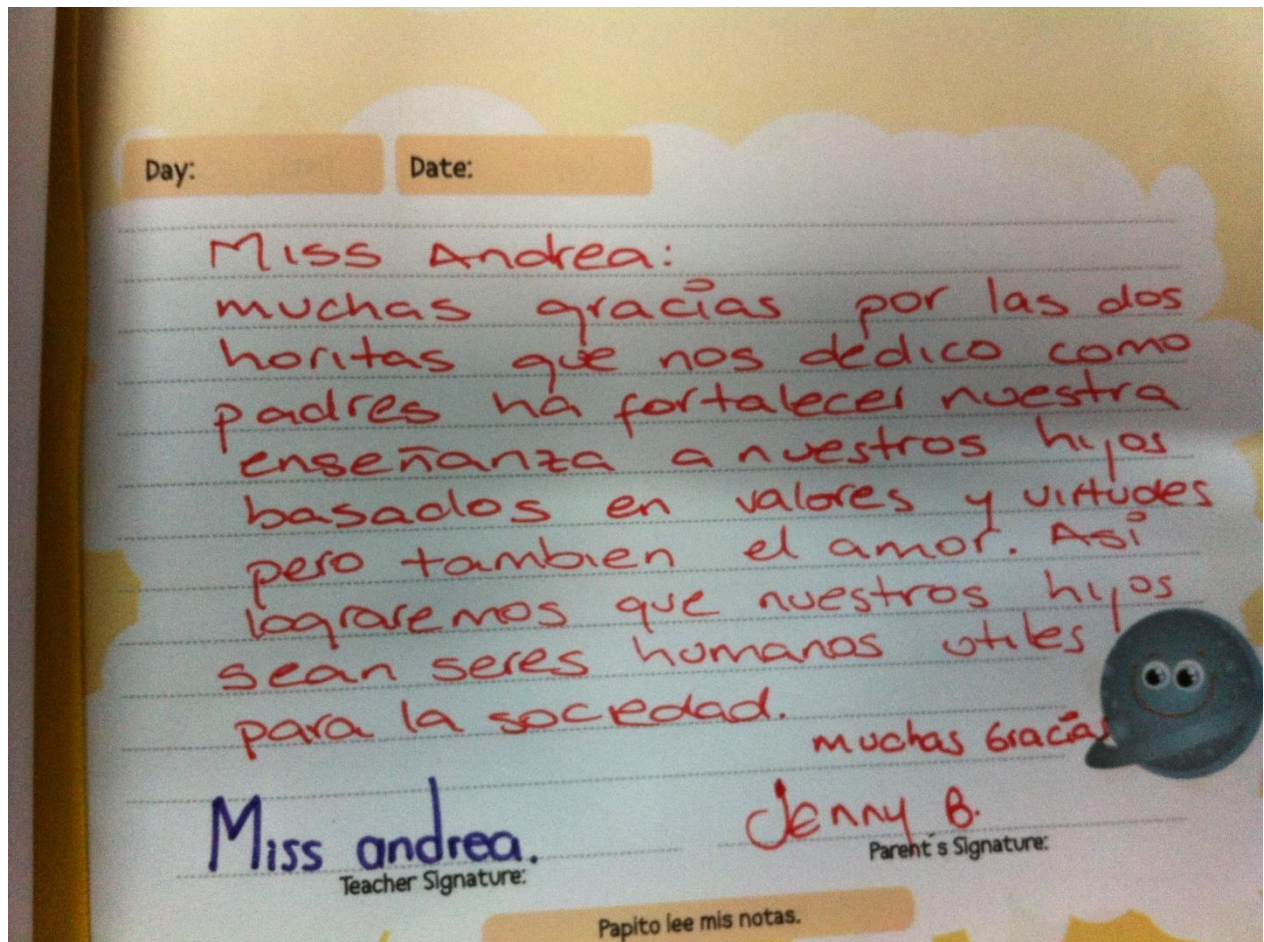 Day: Date:
Miss Andrea:
muchas gracias por las dos
horitas que nos dedico como
padres ha fortalecer nuestra
enseñanza a nuestros hijos
basados en valores y virtudes
pero tambien el amor. Asi
lograremos que nuestros hijos
sean seres humanos utiles
para la sociedad.
muchas Gracias
Miss andrea. Jenny B.
Teacher Signature: Parent's Signature:
Papito lee mis notas.